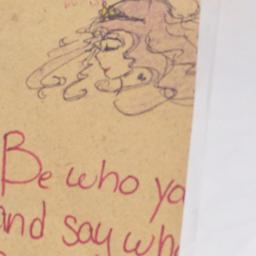 Be who yo
and say wh